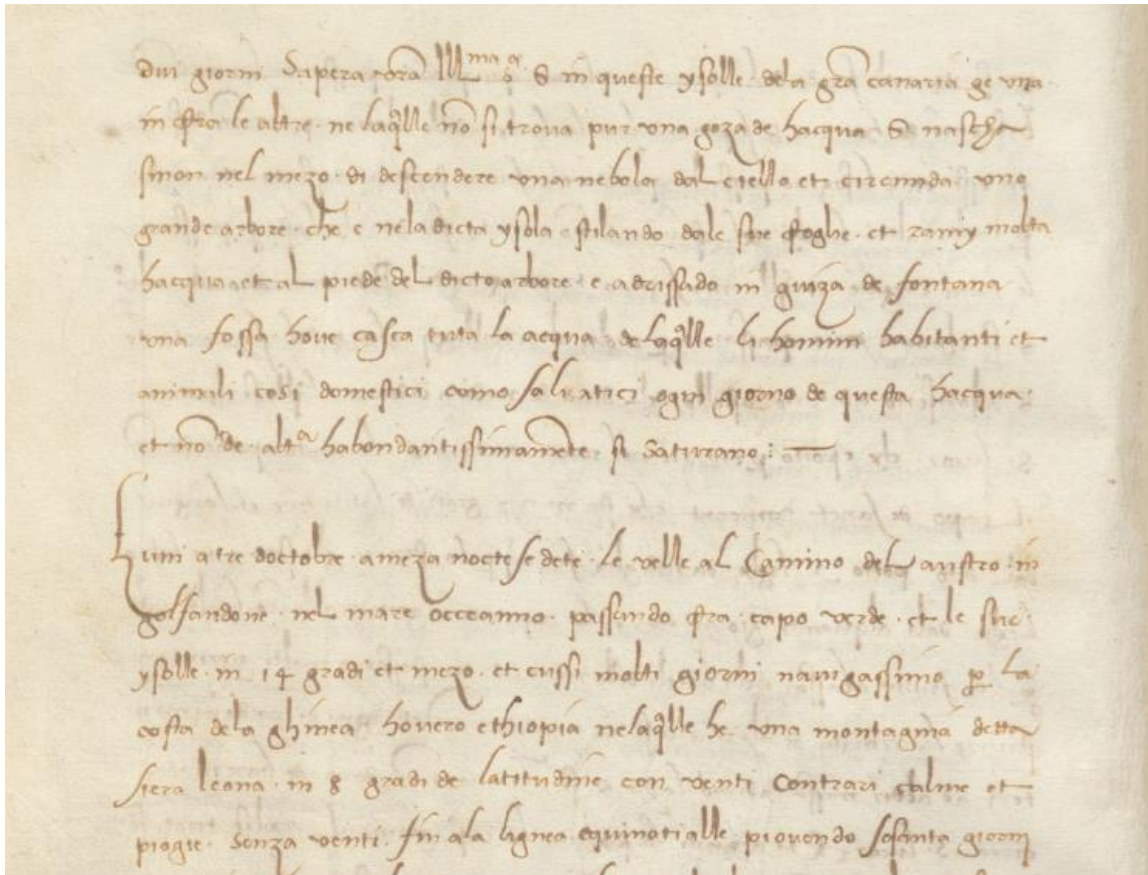 dui giorni Sapera vr̃a Illma S. in queste ysolle dela grã canaria ge vna
in fra le altre ne laq̃lle nõ si trova pur vna goza de hacqua S nascha
sinon nel mezo di descendere vna nebola dal ciello et circunda vno
grande arbore che e nela dicta ysola stilando dale sue foglie et ramy molta
hacqua et al piede del dicto arbore e adrissado in guiza de fontana
vna fossa hove casca tuta la acqua delaq̃lle li homini habitanti et
animali cosi domestici como saluatici ogni giorno de questa hacqua
et nõ de altra habondantissimamente si saturano :—
Luni a tre doctobre a meza nocte se dete le velle al Camino del austro in
golfandone nel mare occeanno passando fra capo verde et le sue
ysolle in 14 gradi et mezo et cussi molti giorni nauigassimo p̱ la
costa dela ghinea hovero ethiopia nelaq̃lle he vna montagnia detta
siera leona in 8 gradi de latitudine con venti contrari calme et
piogie senza venti fin a la lignea equinotialle piouendo sesanta giorni